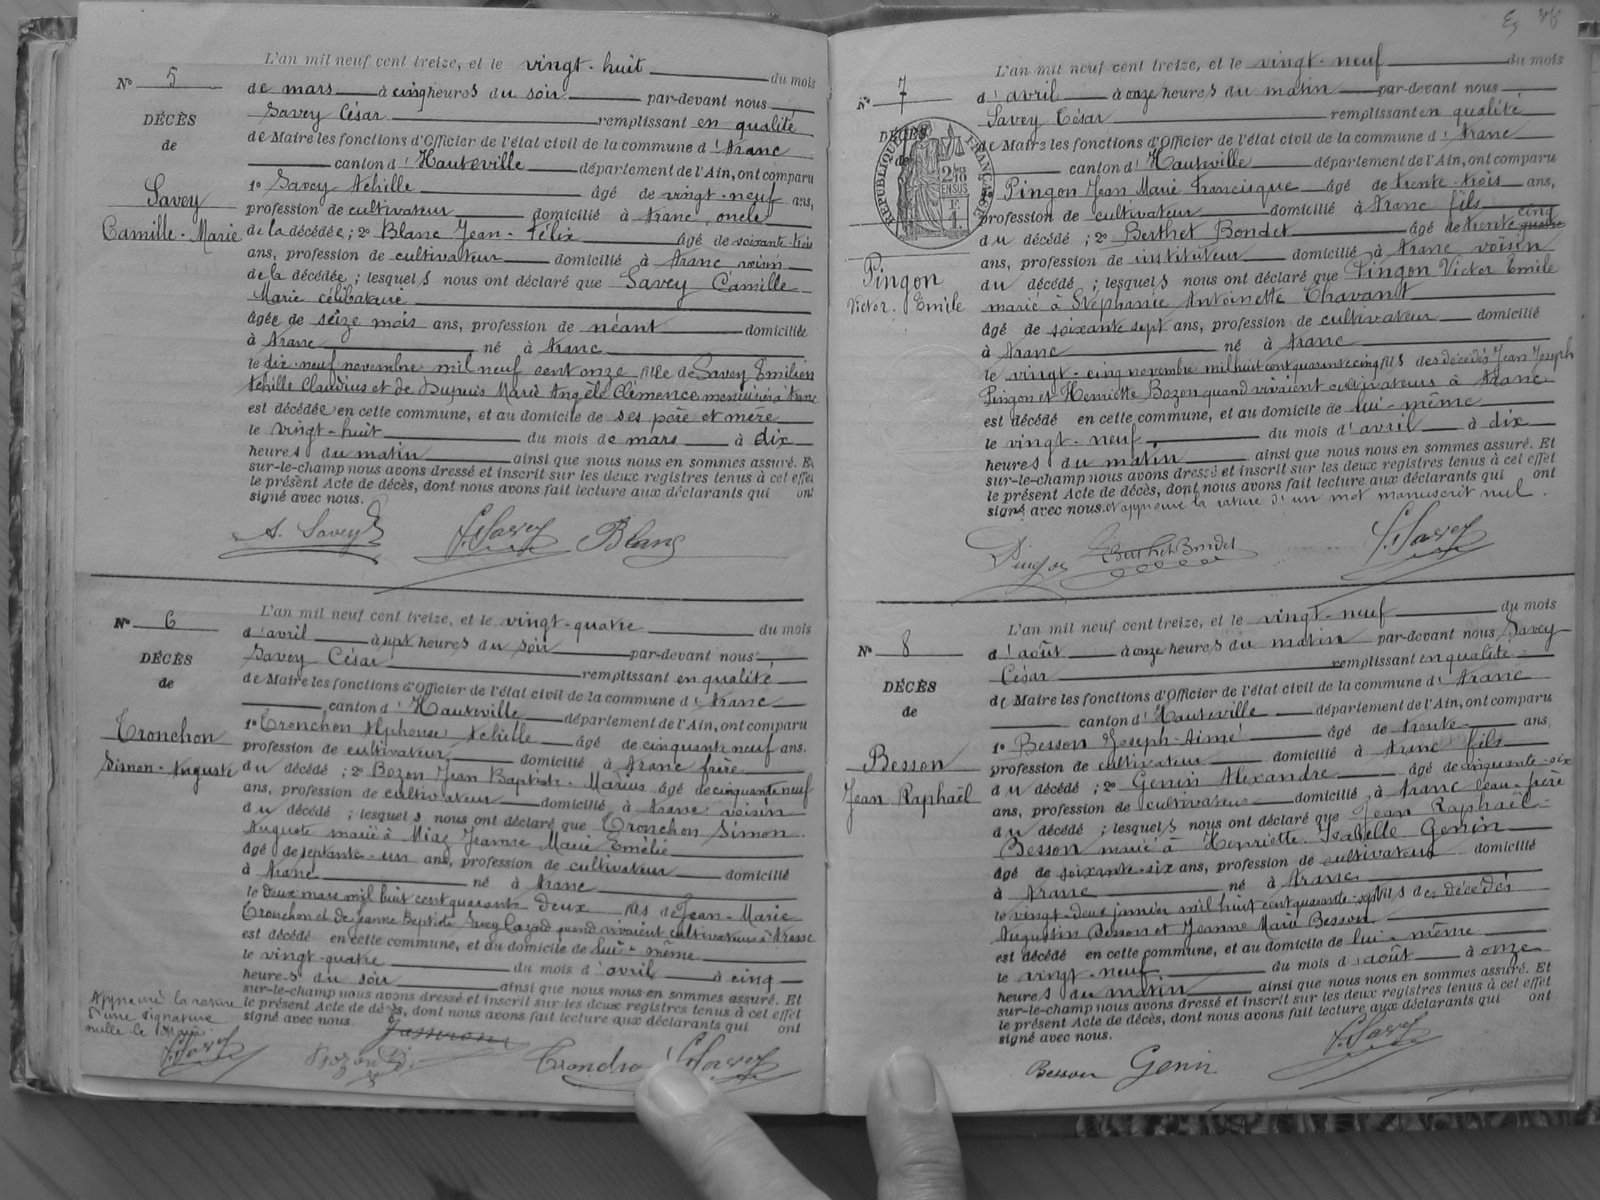 L'an mil neuf cent treize, et le vingt-huit du mois
N° 5
de mars à cinq heures du soir par-devant nous
Savey César remplissant en qualité
DÉCÈS
de Maire les fonctions d'Officier de l'état civil de la commune d'Aranc
de
canton d'Hauteville département de l'Ain, ont comparu
1° Savey Achille âgé de vingt-neuf ans,
Savey
profession de cultivateur domicilié à Aranc, oncle
Camille-Marie
de la décédée; 2° Blanc Jean-Félix âgé de soixante-trois
ans, profession de cultivateur domicilié à Aranc voisin
de la décédée; lesquels nous ont déclaré que Savey Camille
Marie célibataire
âgée de seize mois ans, profession de néant domiciliée
à Aranc né à Aranc
le dix-neuf novembre mil neuf cent onze fille de Savey Emilien
Achille Claudius et de Dupuis Marie Angèle Clémence menuisier à Aranc
est décédée en cette commune, et au domicile de ses père et mère
le vingt-huit du mois de mars à dix
heures du matin ainsi que nous nous en sommes assuré. Et
sur-le-champ nous avons dressé et inscrit sur les deux registres tenus à cet effet
le présent Acte de décès, dont nous avons fait lecture aux déclarants qui ont
signé avec nous.
A. Savey C. Savey Blanc
L'an mil neuf cent treize, et le vingt-quatre du mois
N° 6
d'avril à sept heures du soir par-devant nous
Savey César remplissant en qualité
DÉCÈS
de Maire les fonctions d'Officier de l'état civil de la commune d'Aranc
de
canton d'Hauteville département de l'Ain, ont comparu
Tronchon
1° Tronchon Alphonse Achille âgé de cinquante neuf ans.
profession de cultivateur domicilié à Aranc frère
Simon-Auguste
du décédé; 2° Bozon Jean Baptiste-Marius âgé de cinquante neuf
ans, profession de cultivateur domicilié à Aranc voisin
du décédé; lesquels nous ont déclaré que Tronchon Simon
Auguste marié à Miaz Jeanne Marie Emélie
âgé de septante-un ans, profession de cultivateur domicilié
à Aranc né à Aranc
le deux mars mil huit cent quarante deux fils de Jean-Marie
Tronchon et de Jeanne Baptiste quand vivaient cultivateurs à Aranc
est décédé en cette commune, et au domicile de lui-même
le vingt-quatre du mois d'avril à cinq
heures du soir ainsi que nous nous en sommes assuré. Et
sur-le-champ nous avons dressé et inscrit sur les deux registres tenus à cet effet
le présent Acte de décès, dont nous avons fait lecture aux déclarants qui ont
signé avec nous.
Approuvé la rature
d'une signature
nulle Le Maire
C. Savey
Bozon Tronchon C. Savey
L'an mil neuf cent treize, et le vingt-neuf du mois
N° 7
d'avril à onze heures du matin par-devant nous
Savey César remplissant en qualité
DÉCÈS
de Maire les fonctions d'Officier de l'état civil de la commune d'Aranc
RÉPUBLIQUE FRANÇAISE
canton d'Hauteville département de l'Ain, ont comparu
1° Pingon Jean Marie Francisque âgé de trente-trois ans,
profession de cultivateur domicilié à Aranc fils
du décédé; 2° Berthet Bondet âgé de trente quatre cinq
ans, profession de instituteur domicilié à Aranc voisin
Pingon
du décédé; lesquels nous ont déclaré que Pingon Victor Emile
Victor. Emile
marié à Stéphanie Antoinette Chavant
âgé de soixante sept ans, profession de cultivateur domicilié
à Aranc né à Aranc
le vingt-cinq novembre mil huit cent quarante cinq fils des décédés Jean Joseph
Pingon et Henriette Bozon quand vivaient cultivateurs à Aranc
est décédé en cette commune, et au domicile de lui-même
le vingt-neuf du mois d'avril à dix
heures du matin ainsi que nous nous en sommes assuré. Et
sur-le-champ nous avons dressé et inscrit sur les deux registres tenus à cet effet
le présent Acte de décès, dont nous avons fait lecture aux déclarants qui ont
signé avec nous. et approuvé la rature d'un mot manuscrit nul.
Pingon Berthet Bondet C. Savey
L'an mil neuf cent treize, et le vingt-neuf du mois
N° 8
d'août à onze heures du matin par-devant nous Savey
César remplissant en qualité
DÉCÈS
de Maire les fonctions d'Officier de l'état civil de la commune d'Aranc
de
canton d'Hauteville département de l'Ain, ont comparu
1° Besson Joseph-Aimé âgé de trente ans.
Besson
profession de cultivateur domicilié à Aranc fils
Jean Raphaël
du décédé; 2° Genin Alexandre âgé de cinquante-six
ans, profession de cultivateur domicilié à Aranc beau-frère
du décédé; lesquels nous ont déclaré que Jean Raphaël
Besson marié à Henriette Isabelle Genin
âgé de soixante-six ans, profession de cultivateur domicilié
à Aranc né à Aranc
le vingt-deux janvier mil huit cent quarante-sept fils des décédés
Augustin Besson et Jeanne Marie Besson
est décédé en cette commune, et au domicile de lui-même
le vingt-neuf du mois d'août à onze
heures du matin ainsi que nous nous en sommes assuré. Et
sur-le-champ nous avons dressé et inscrit sur les deux registres tenus à cet effet
le présent Acte de décès, dont nous avons fait lecture aux déclarants qui ont
signé avec nous.
Besson Genin C. Savey